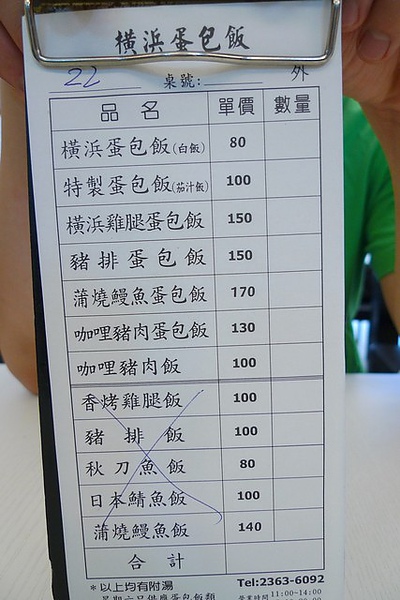 橫浜蛋包飯
22 桌號: 外
品名 單價 數量
橫浜蛋包飯(白飯) 80
特製蛋包飯(茄汁飯) 100
橫浜雞腿蛋包飯 150
豬排蛋包飯 150
蒲燒鰻魚蛋包飯 170
咖哩豬肉蛋包飯 130
咖哩豬肉飯 100
香烤雞腿飯 100
豬排飯 100
秋刀魚飯 80
日本鯖魚飯 100
蒲燒鰻魚飯 140
合計
*以上均有附湯 Tel:2363-6092
星期六日供應蛋包飯類 營業時間 11:00~14:00